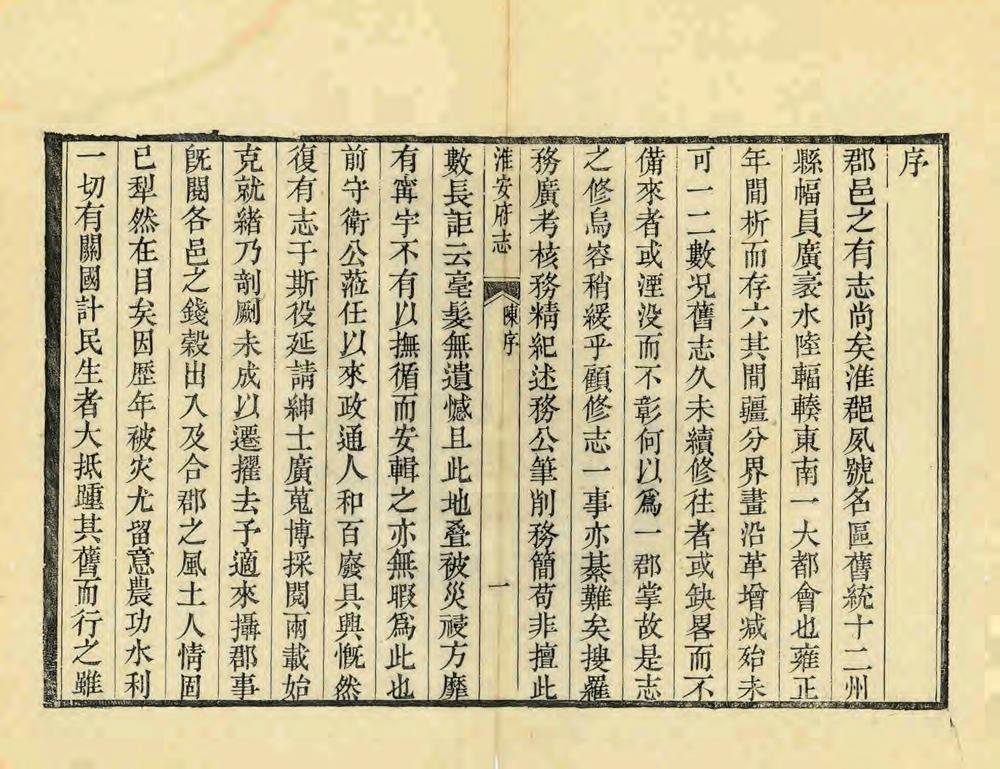 序
郡邑之有志尚矣淮郡夙號名區舊統十二州
縣幅員廣袤水陸輻輳東南一大都會也雍正
年間析而存六其間疆分界畫沿革增减殆未
可一二數况舊志久未續修往者或缺畧而不
備來者或湮没而不彰何以爲一郡掌故是志
之修烏容稍緩乎顧修志一事亦綦難矣搜羅
務廣考核務精紀述務公筆削務簡苟非擅此
淮安府志
陳序
一
數長詎云毫髮無遺憾且此地叠被災祲方靡
有甯宇不有以撫循而安輯之亦無暇爲此也
前守衛公蒞任以來政通人和百廢具興慨然
復有志于斯役延請紳士廣蒐博採閱兩載始
克就緒乃剞劂未成以遷擢去予適來攝郡事
旣閱各邑之錢榖出入及合郡之風土人情固
已犁然在目矣因歷年被灾尤留意農功水利
一切有關國計民生者大抵踵其舊而行之雖